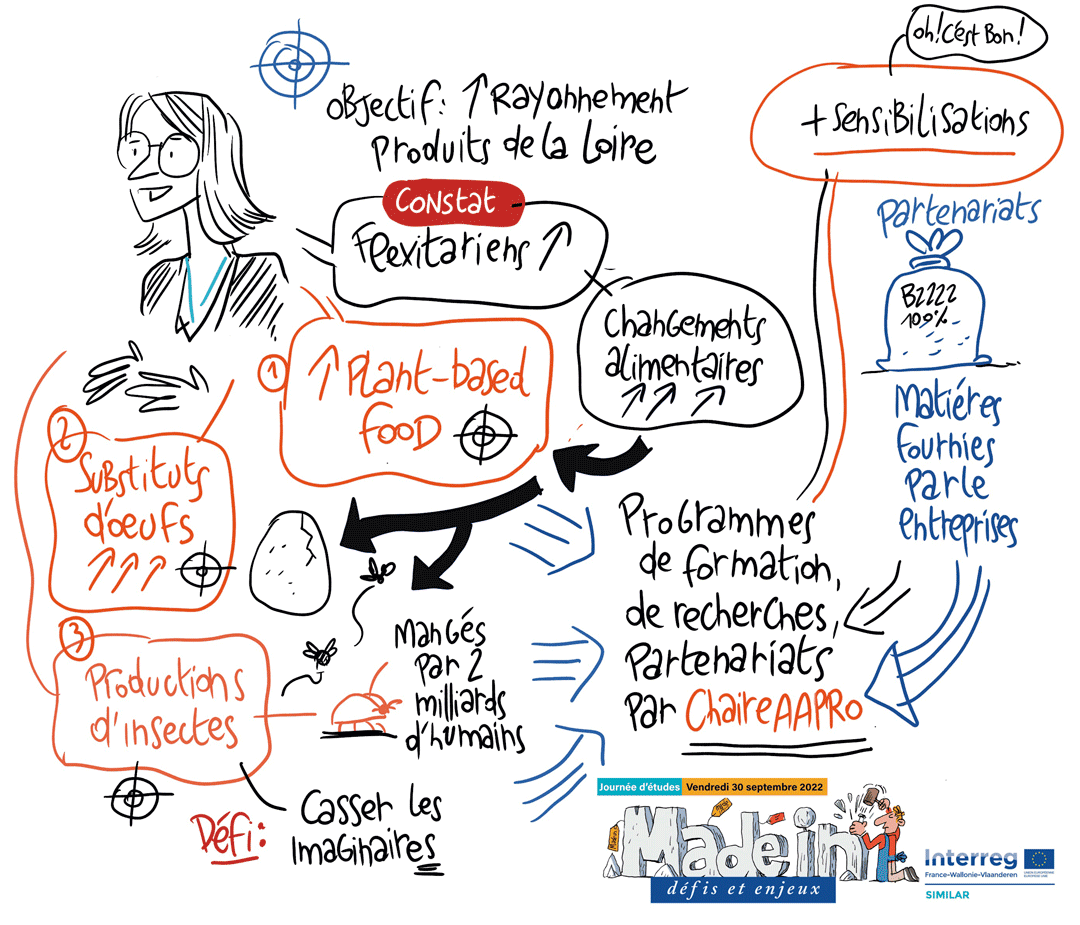 oh! C'est Bon!
+ Sensibilisations
Objectif: ↑ Rayonnement
Produits de la Loire
Constat
Flexitariens ↑
Changements
alimentaires
↑↑↑
Partenariats
BZZZZ
100%
Matiéres
Fournies
Par le
entreprises
1
↑ Plant-based
Food
2
Substituts
d'oeufs
↑↑↑
3
Productions
d'insectes
Mangés
Par 2
milliards
d'humains
Défi:
Casser les
Imaginaires
Programmes
de formation,
de recherches,
Partenariats
Par Chaire AAPRO
Journée d'études Vendredi 30 septembre 2022
Made in
défis et enjeux
Interreg
France-Wallonie-Vlaanderen
SIMILAR